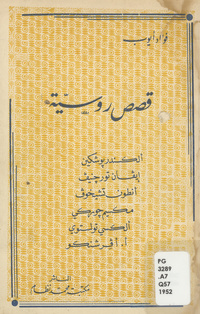 فؤاد أيوب
قصص روسية
ألكسندر بوشكين
إيفان تورجنيف
أنطون تشيخوف
مكسيم جوركي
ألكسي تولستوي
الناشر
PG
3289
.A7
Q57
1952